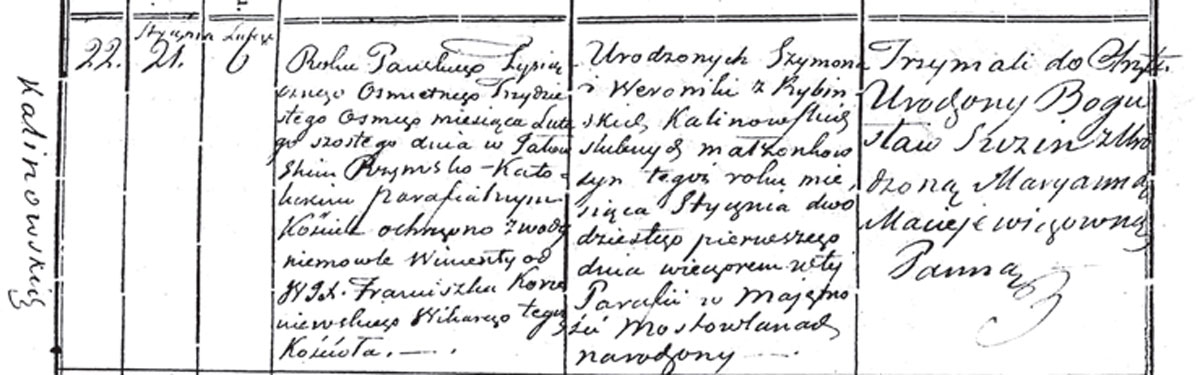 Kalinowskich
22.
Stycznia
21.
Lutego
6
Roku Pańskiego Tysiąc
cznego Osmsetnego Trzydzie
stego Osmego miesiąca Lute
go szostego dnia w Jałow
skim Rzymsko-Kato-
lickim Parafialnym
Kościele ochrzczono z wody
niemowle Wincenty od
W JX. Franciszka Korze
niewskiego Wikarego tegoż
Kościoła.
Urodzonych Szymona
i Weroniki z Rybin
skich Kalinowskich
slubnych małżonkow
syn tegoż roku mie
siąca Stycznia dwo
dziestego pierwszego
dnia wieczorem w tej
Parafii w Majętno
ści Mostowlanach
narodzony
Trzymali do Chrztu
Urodzony Bogu
sław z Uro
dzoną Maryanną
Maciejewiczowną
Panną